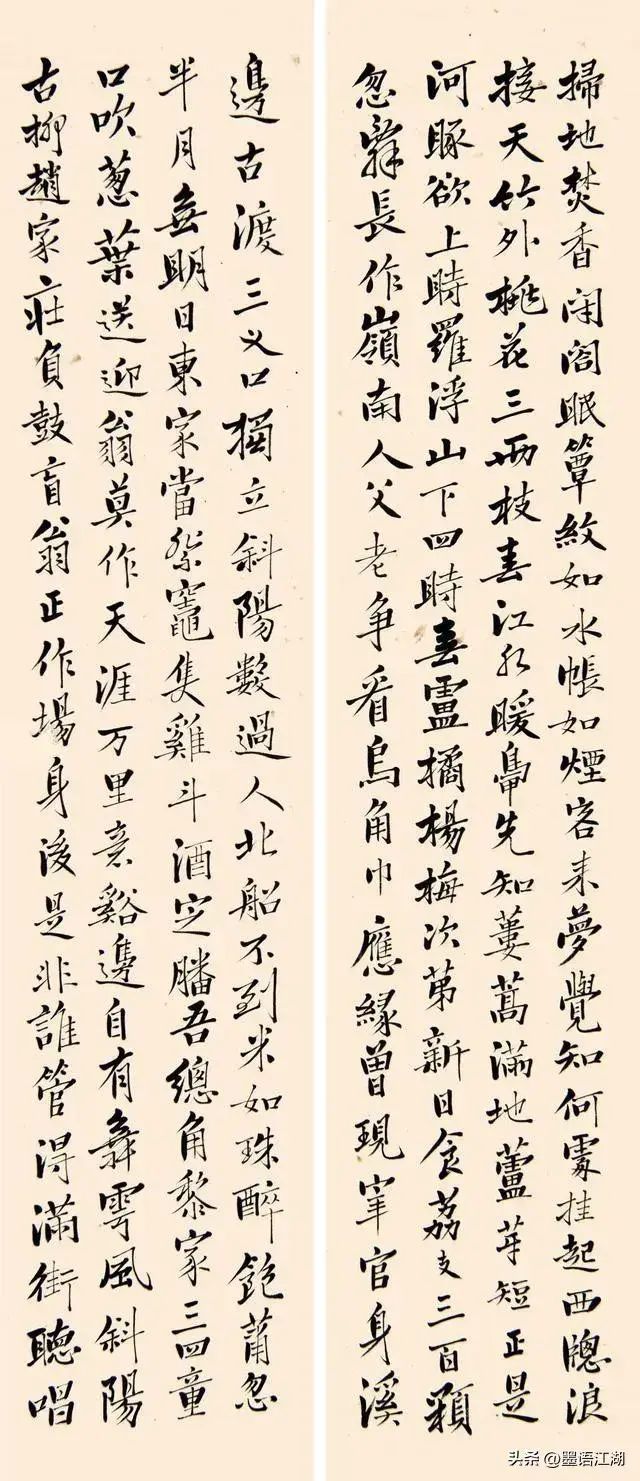 掃地焚香閉閤眠簟紋如水帳如煙客来夢覺知何處挂起西牕浪
接天竹外桃花三兩枝春江水暖鳧先知蔞蒿滿地蘆芽短正是
河豚欲上時羅浮山下四時春盧橘楊梅次苐新日食荔支三百顆
忽辭長作嶺南人父老争看烏角巾應緣曾現宰官身溪
邊古渡三义口獨立斜陽數過人北船不到米如珠醉飽蕭忽
半月無明日東家當祭竈隻雞斗酒定膰吾總角黎家三四童
口吹葱葉送迎翁莫作天涯万里意谿邊自有舞雩風斜陽
古柳趙家莊負鼓盲翁正作場身後是非誰管得滿街聽唱
头条 @墨语江湖